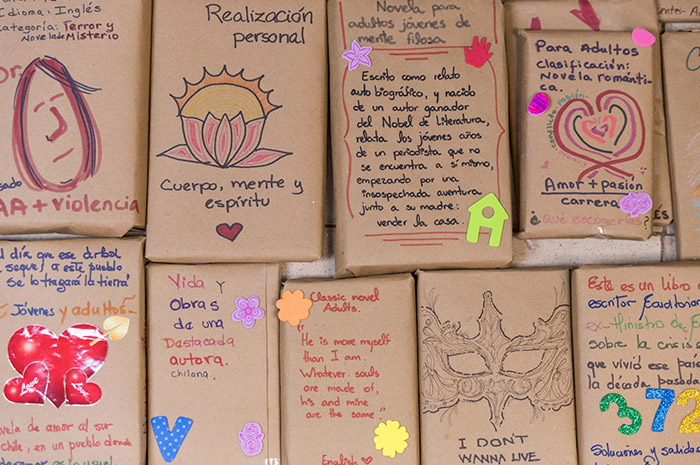 Idioma: Inglés
Categoría: Terror y
Misterio
AA + violencia
Realización
personal
Cuerpo, mente y
espíritu
Novela para
adultos jóvenes de
mente filosa.
Escrito como relato
auto biográfico, y nacido
de un autor ganador
del Nobel de Literatura,
relata los jóvenes años
de un periodista que no
se encuentra a sí mismo,
empezando por una
insospechada aventura
junto a su madre:
vender la casa.
Para Adultos
clasificación:
Novela romántica.
conflicto
Amor + pasión
carrera
¿Qué escogerías?
día que ese árbol
seque, a este pueblo
se lo tragará la tierra"
Jóvenes y adultos
Love
Love
Love
novela de amor al sur
Chile, en un pueblo donde
Vida y
Obras
de una
Destacada
autora.
chilena.
V
Classic novel
Adults.
"He is more myself
than I am.
Whatever souls
are made of,
his and mine
are the same."
English
I DON'T
WANNA LIVE
Este es un libro d
escritor Ecuatoria
ex-Ministro de E
sobre la crisis
que vivió ese país
la década pasada
372
Soluciones y salidas